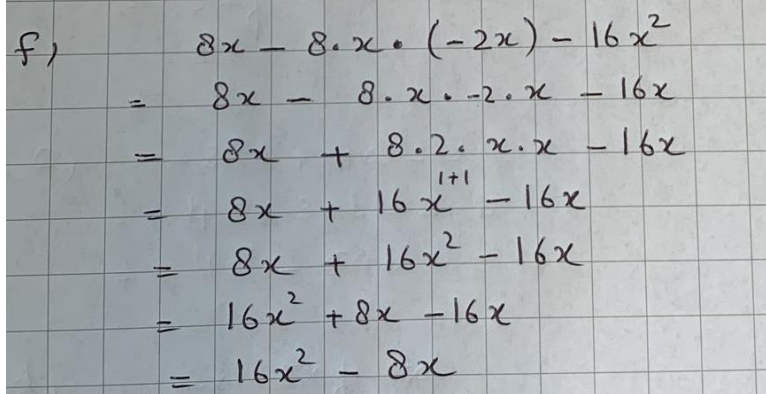 f, 8x - 8·x·(-2x) - 16x²
= 8x - 8·x·-2·x - 16x
= 8x + 8·2·x·x - 16x
= 8x + 16x¹⁺¹ - 16x
= 8x + 16x² - 16x
= 16x² + 8x - 16x
= 16x² - 8x